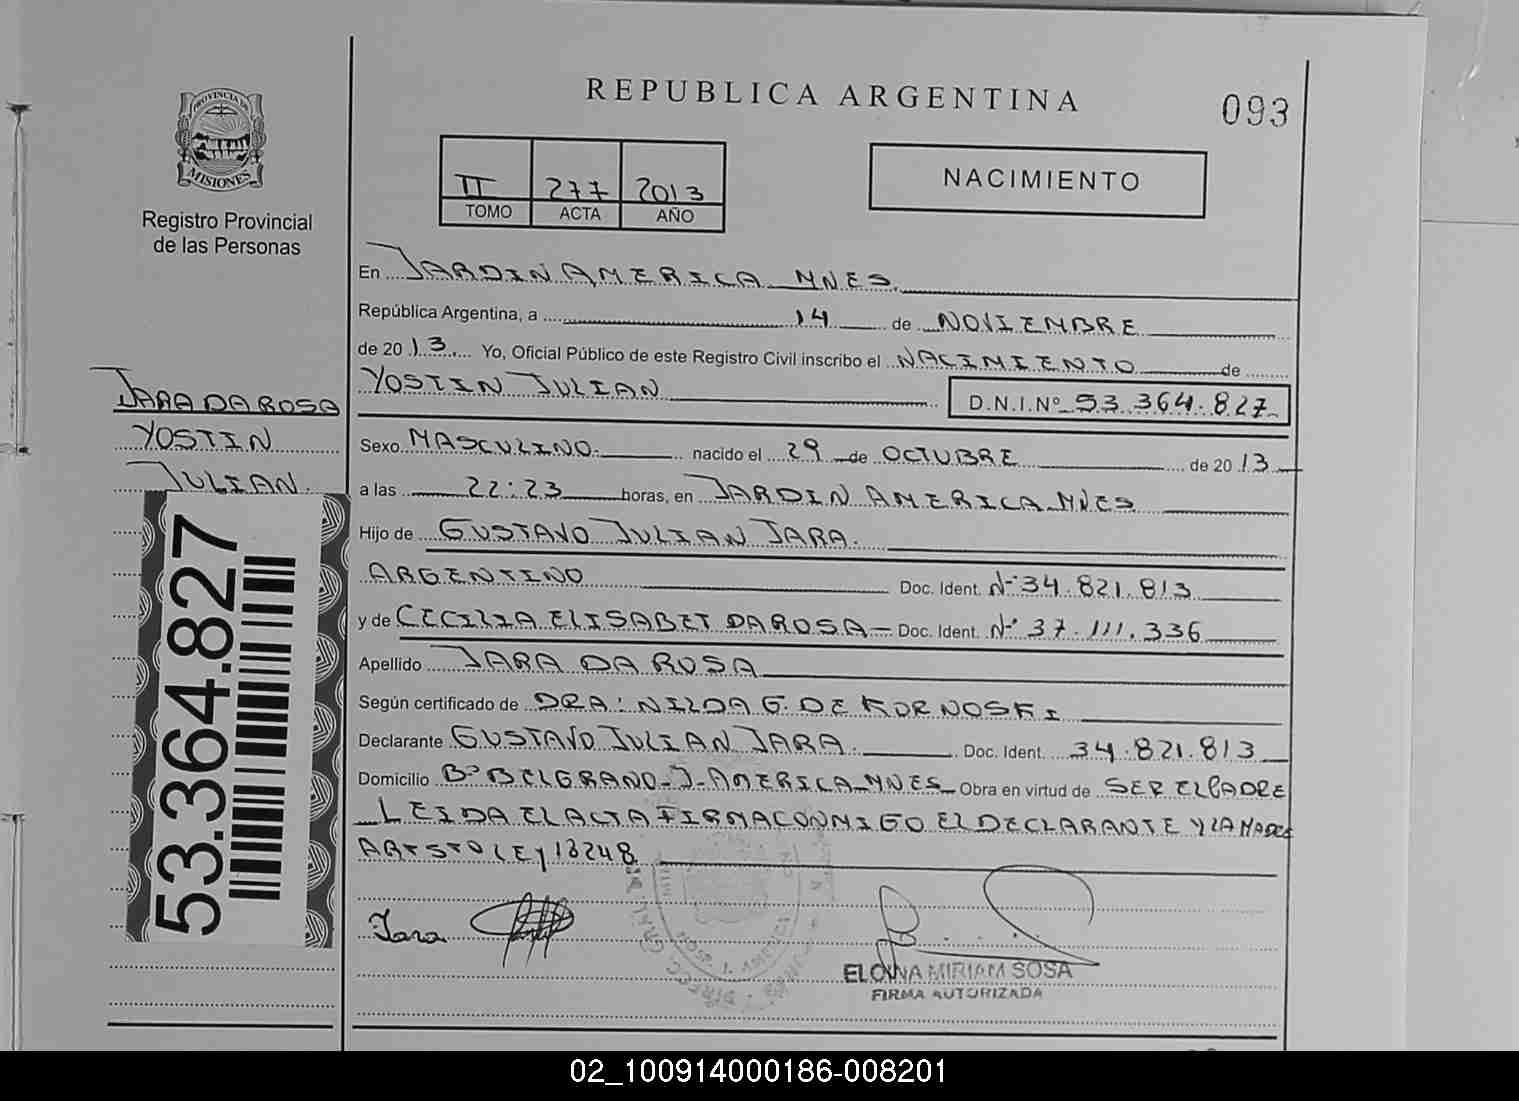 REPUBLICA ARGENTINA
093
PROVINCIA DE
MISIONES
Registro Provincial
de las Personas
II 277 2013
TOMO ACTA AÑO
NACIMIENTO
En JARDIN AMERICA MNES.
República Argentina, a 14 de NOVIEMBRE
de 2013 Yo, Oficial Público de este Registro Civil inscribo el NACIMIENTO de
YOSTIN JULIAN D.N.I.Nº 53.364.827
JARA DA ROSA
YOSTIN
JULIAN.
Sexo MASCULINO. nacido el 29 de OCTUBRE de 2013
a las 22:23 horas, en JARDIN AMERICA MNES
Hijo de GUSTAVO JULIAN JARA.
ARGENTINO Doc. Ident. Nº 34.821.813
y de CECILIA ELISABET DA ROSA Doc. Ident. Nº 37.111.336
Apellido JARA DA ROSA
Según certificado de DRA: NILDA G. DE KORNOSKI
Declarante GUSTAVO JULIAN JARA Doc. Ident. 34.821.813
Domicilio Bº BELGRANO-J-AMERICA-MNES Obra en virtud de SER EL PADRE
LEIDA EL ACTA FIRMA CONMIGO EL DECLARANTE Y LA MADRE
LEY 18248
53.364.827
Jara
ELOINA MIRIAM SOSA
FIRMA AUTORIZADA
02_100914000186-008201